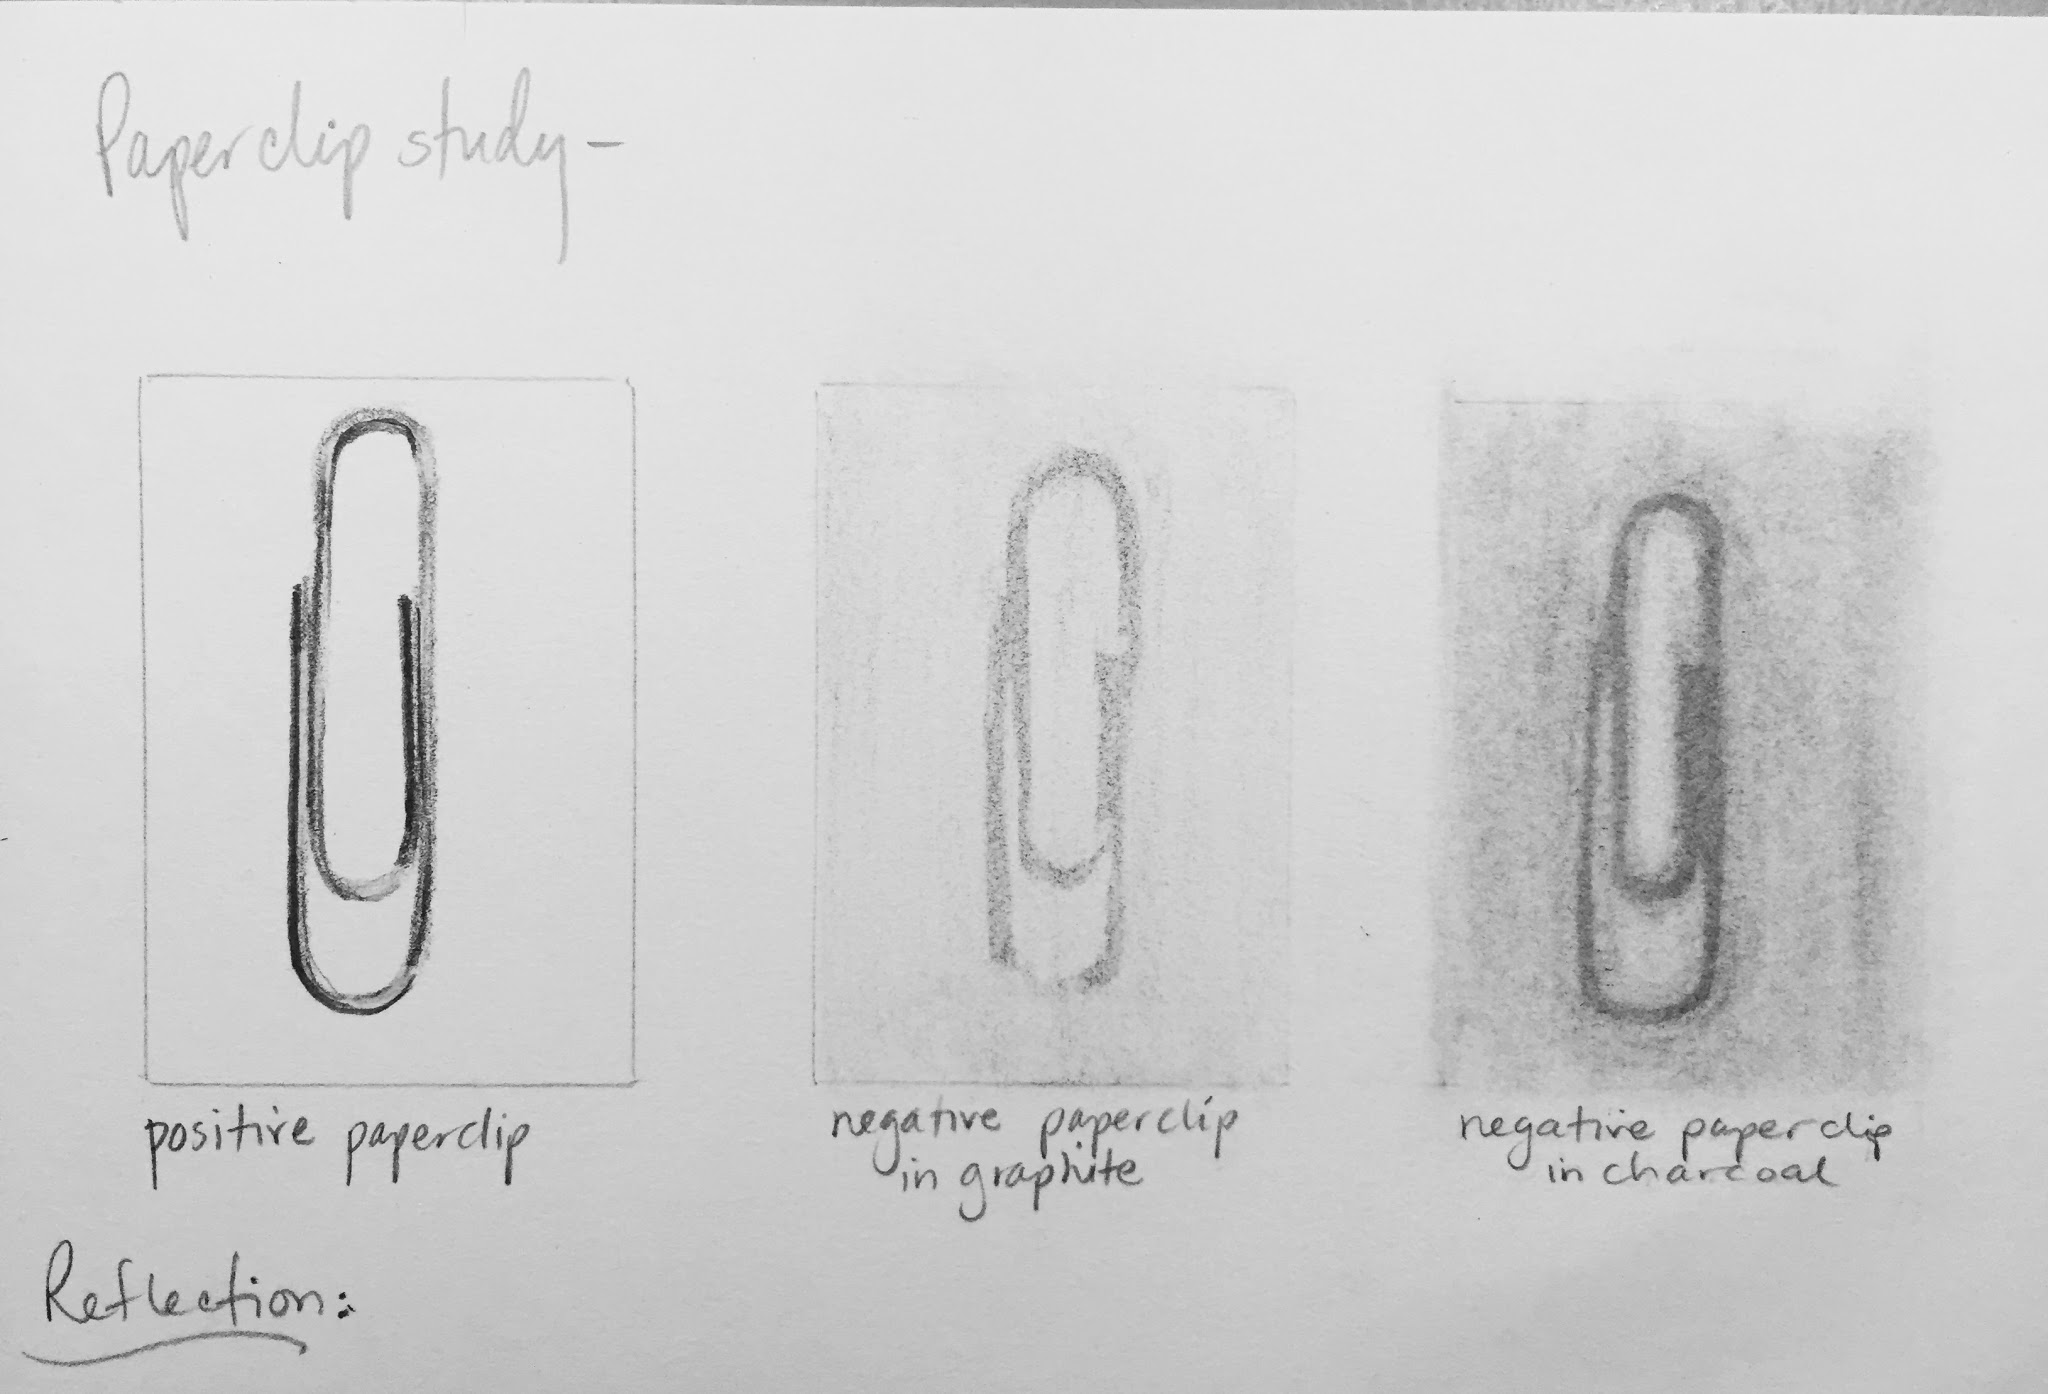 Paperclip study -
positive paperclip
negative paperclip
in graphite
negative paperclip
in charcoal
Reflection: